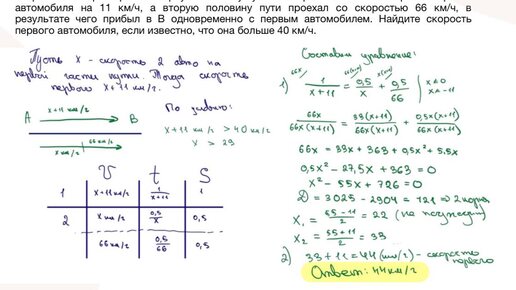 автомобиля на 11 км/ч, а вторую половину пути проехал со скоростью 66 км/ч, в
результате чего прибыл в В одновременно с первым автомобилем. Найдите скорость
первого автомобиля, если известно, что она больше 40 км/ч.
Пусть x - скорость 2 авто на
первой части пути. Тогда скорость
первого x+11 км/ч.
x+11 км/ч
A B
66 км/ч
x км/ч
По условию:
x+11 км/ч > 40 км/ч
x > 29
V t S
1 x+11 км/ч 1/(x+11) 1
2 x км/ч 0,5/x 0,5
66 км/ч 0,5/66 0,5
Составим уравнение:
1) 1/(x+11) = 0,5/x + 0,5/66
66x/(66x(x+11)) = 33(x+11)/(66x(x+11)) + 0,5x(x+11)/(66x(x+11))
66x = 33x + 363 + 0,5x² + 5.5x
0,5x² - 27,5x + 363 = 0
x² - 55x + 726 = 0
D = 3025 - 2904 = 121 => 2 корня
x₁ = (55-11)/2 = 22 (не подходит)
x₂ = (55+11)/2 = 33
2) 33 + 11 = 44 (км/ч) - скорость
первого
Ответ: 44 км/ч